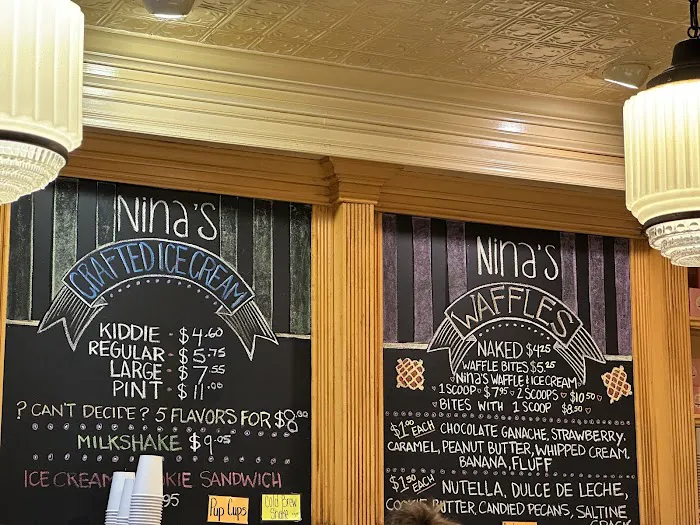 Nina's
CRAFTED ICE CREAM
KIDDIE - $4.60
REGULAR - $5.75
LARGE - $7.55
PINT - $11.00
? CAN'T DECIDE ? 5 FLAVORS FOR $8.00
MILKSHAKE $9.05
ICE CREAM SANDWICH
95
Pup Cups
Cold Brew Shake
Nina's
WAFFLES
NAKED $4.25
WAFFLE BITES $5.25
Nina's WAFFLE & ICE CREAM
1 SCOOP $7.95 2 SCOOPS $10.50
BITES WITH 1 SCOOP $8.50
$1.00 EACH CHOCOLATE GANACHE, STRAWBERRY,
CARAMEL, PEANUT BUTTER, WHIPPED CREAM
BANANA, FLUFF
$1.50 EACH NUTELLA, DULCE DE LECHE,
BUTTER, CANDIED PECANS, SALTINE